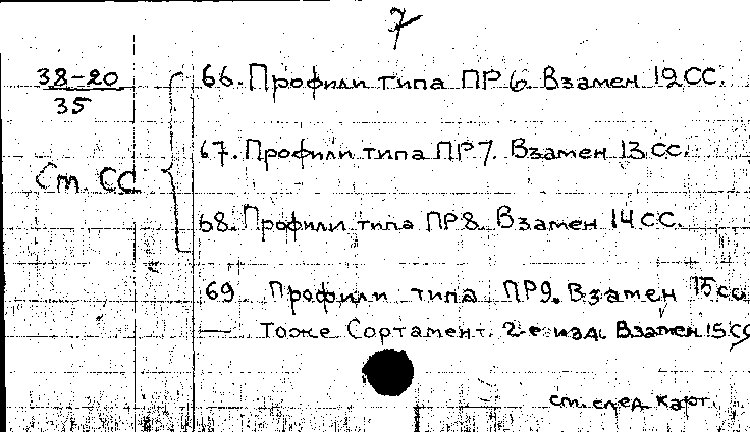 7
38-20
35
Ст. СС
66. Профили типа ПР 6. Взамен 12 СС.
67. Профили типа ПР7. Взамен 13 СС.
68. Профили типа ПР8. Взамен 14 СС.
69 Профили типа ПР9. Взамен 15 СС
— Тоже Сортамент. 2-е изд. Взамен 15 СС
см. след карт.